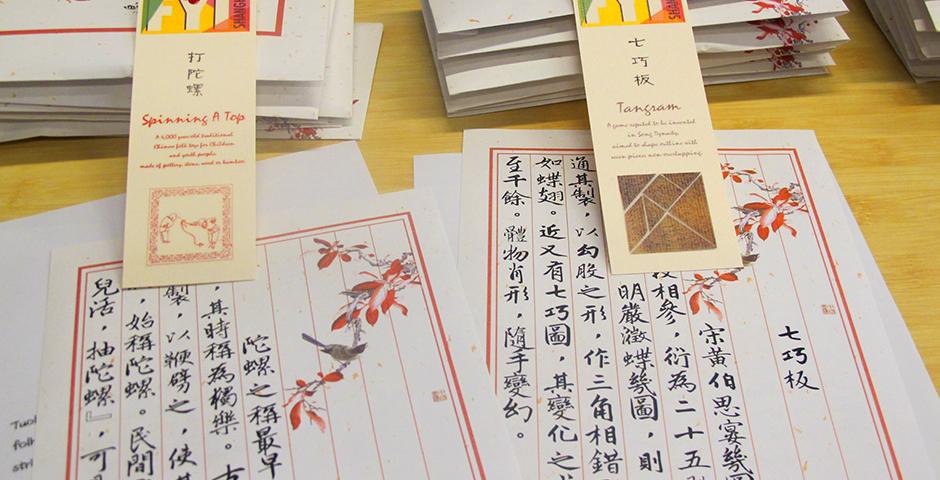 SHANG
打陀螺
Spinning A Top
A 4,000 year-old traditional
Chinese folk toys for Children
and youth people
made of pottery, stone, wood or bamboo.
陀螺之稱最早
，其時稱為獨樂。古
製，以鞭劈之，使其
，始稱陀螺。民間
兒活，抽陀螺』，可
folk
stri
SHAN
七巧板
Tangram
A game reputed to be invented
in Song Dynasty,
aimed to shape outline with
seven pieces non-overlapping.
七巧板
宋黃伯思宴幾圖
相參，衍為二十五別
明嚴澂蝶幾圖，則
通其製，以勾股之形，作三角相錯
如蝶翅。近又有七巧圖，其變化之
至千餘。體物肖形，隨手變幻。